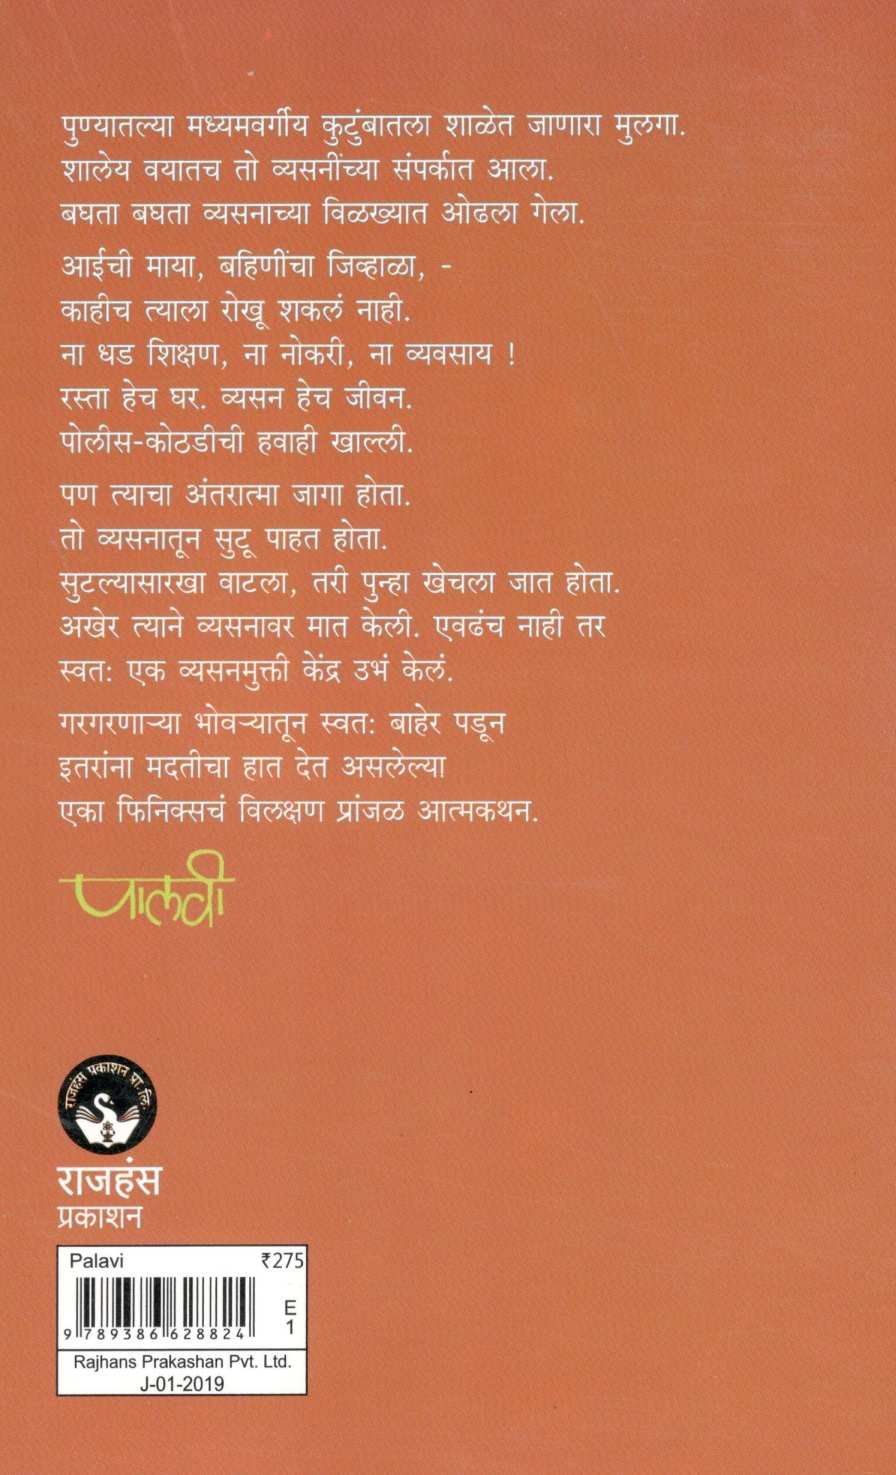 पुण्यातल्या मध्यमवर्गीय कुटुंबातला शाळेत जाणारा मुलगा.
शालेय वयातच तो व्यसनींच्या संपर्कात आला.
बघता बघता व्यसनाच्या विळख्यात ओढला गेला.
आईची माया, बहिणींचा जिव्हाळा, -
काहीच त्याला रोखू शकलं नाही.
ना धड शिक्षण, ना नोकरी, ना व्यवसाय !
रस्ता हेच घर. व्यसन हेच जीवन.
पोलीस-कोठडीची हवाही खाल्ली.
पण त्याचा अंतरात्मा जागा होता.
तो व्यसनातून सुटू पाहत होता.
सुटल्यासारखा वाटला, तरी पुन्हा खेचला जात होता.
अखेर त्याने व्यसनावर मात केली. एवढंच नाही तर
स्वत: एक व्यसनमुक्ती केंद्र उभं केलं.
गरगरणाऱ्या भोवऱ्यातून स्वत: बाहेर पडून
इतरांना मदतीचा हात देत असलेल्या
एका फिनिक्सचं विलक्षण प्रांजळ आत्मकथन.
पालवी
राजहंस प्रकाशन प्रा. लि.
राजहंस
प्रकाशन
Palavi ₹275
E
1
9 789386 628824
Rajhans Prakashan Pvt. Ltd.
J-01-2019